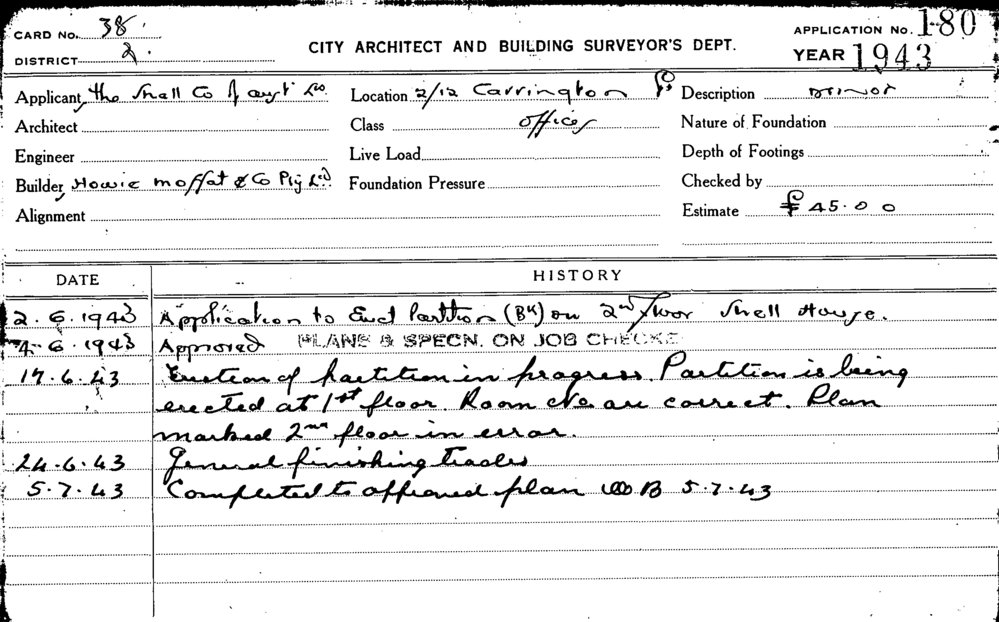 CARD No. 38
DISTRICT 2.
CITY ARCHITECT AND BUILDING SURVEYOR'S DEPT.
APPLICATION No. 180
YEAR 1943
Applicant The Shell Co of Aust Ltd. Location 2/12 Carrington St Description minor
Architect Class Offices Nature of Foundation
Engineer Live Load Depth of Footings
Builder, Howie Moffat & Co Pty Ltd Foundation Pressure Checked by
Alignment Estimate £45.0.0
DATE HISTORY
2.6.1943 Application to Erect Partition (Bk) on 2nd floor Shell House.
4.6.1943 Approved PLANS & SPECN. ON JOB CHECKED
17.6.43 Erection of partition in progress. Partition is being
erected at 1st floor. Room Nos are correct. Plan
marked 2nd floor in error.
24.6.43 General finishing trades
5.7.43 Completed to approved plan B 5.7.43